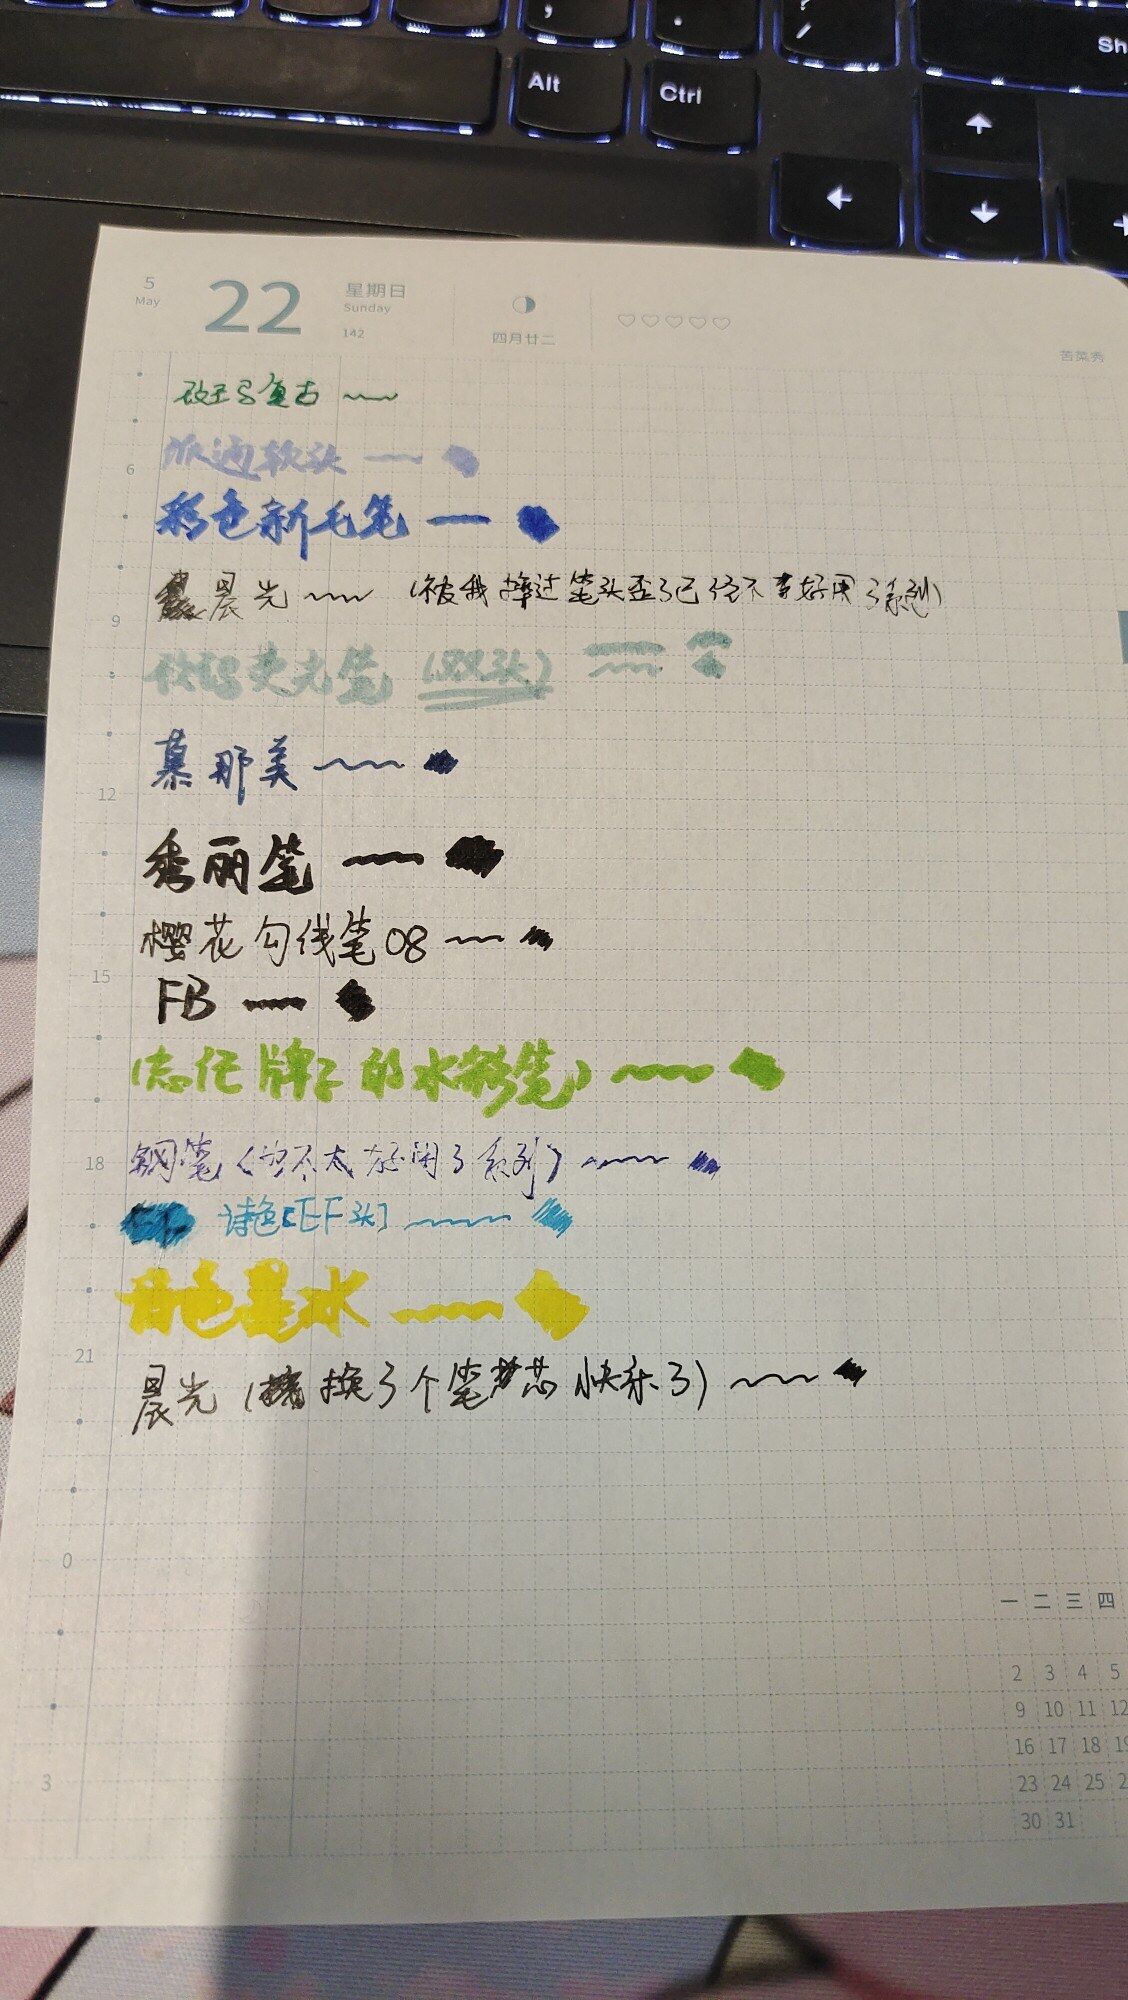 Alt
Ctrl
Sh
5
May
22
星期日
Sunday
142
四月廿二
苦菜秀
复古
派通软头
6
彩色新毛笔
晨光 (被我摔过笔头歪了已经不太好用了系列)
9
荧光笔 (双头)
慕那美
12
秀丽笔
樱花勾线笔08
15
FB
(忘任牌子的水彩笔)
18
钢笔 (也不太好用了系列)
诗色[EF头]
彩色墨水
21
晨光 (换了个笔芯快乐了)
0
3
一 二 三 四
2 3 4 5
9 10 11 12
16 17 18 19
23 24 25 2
30 31